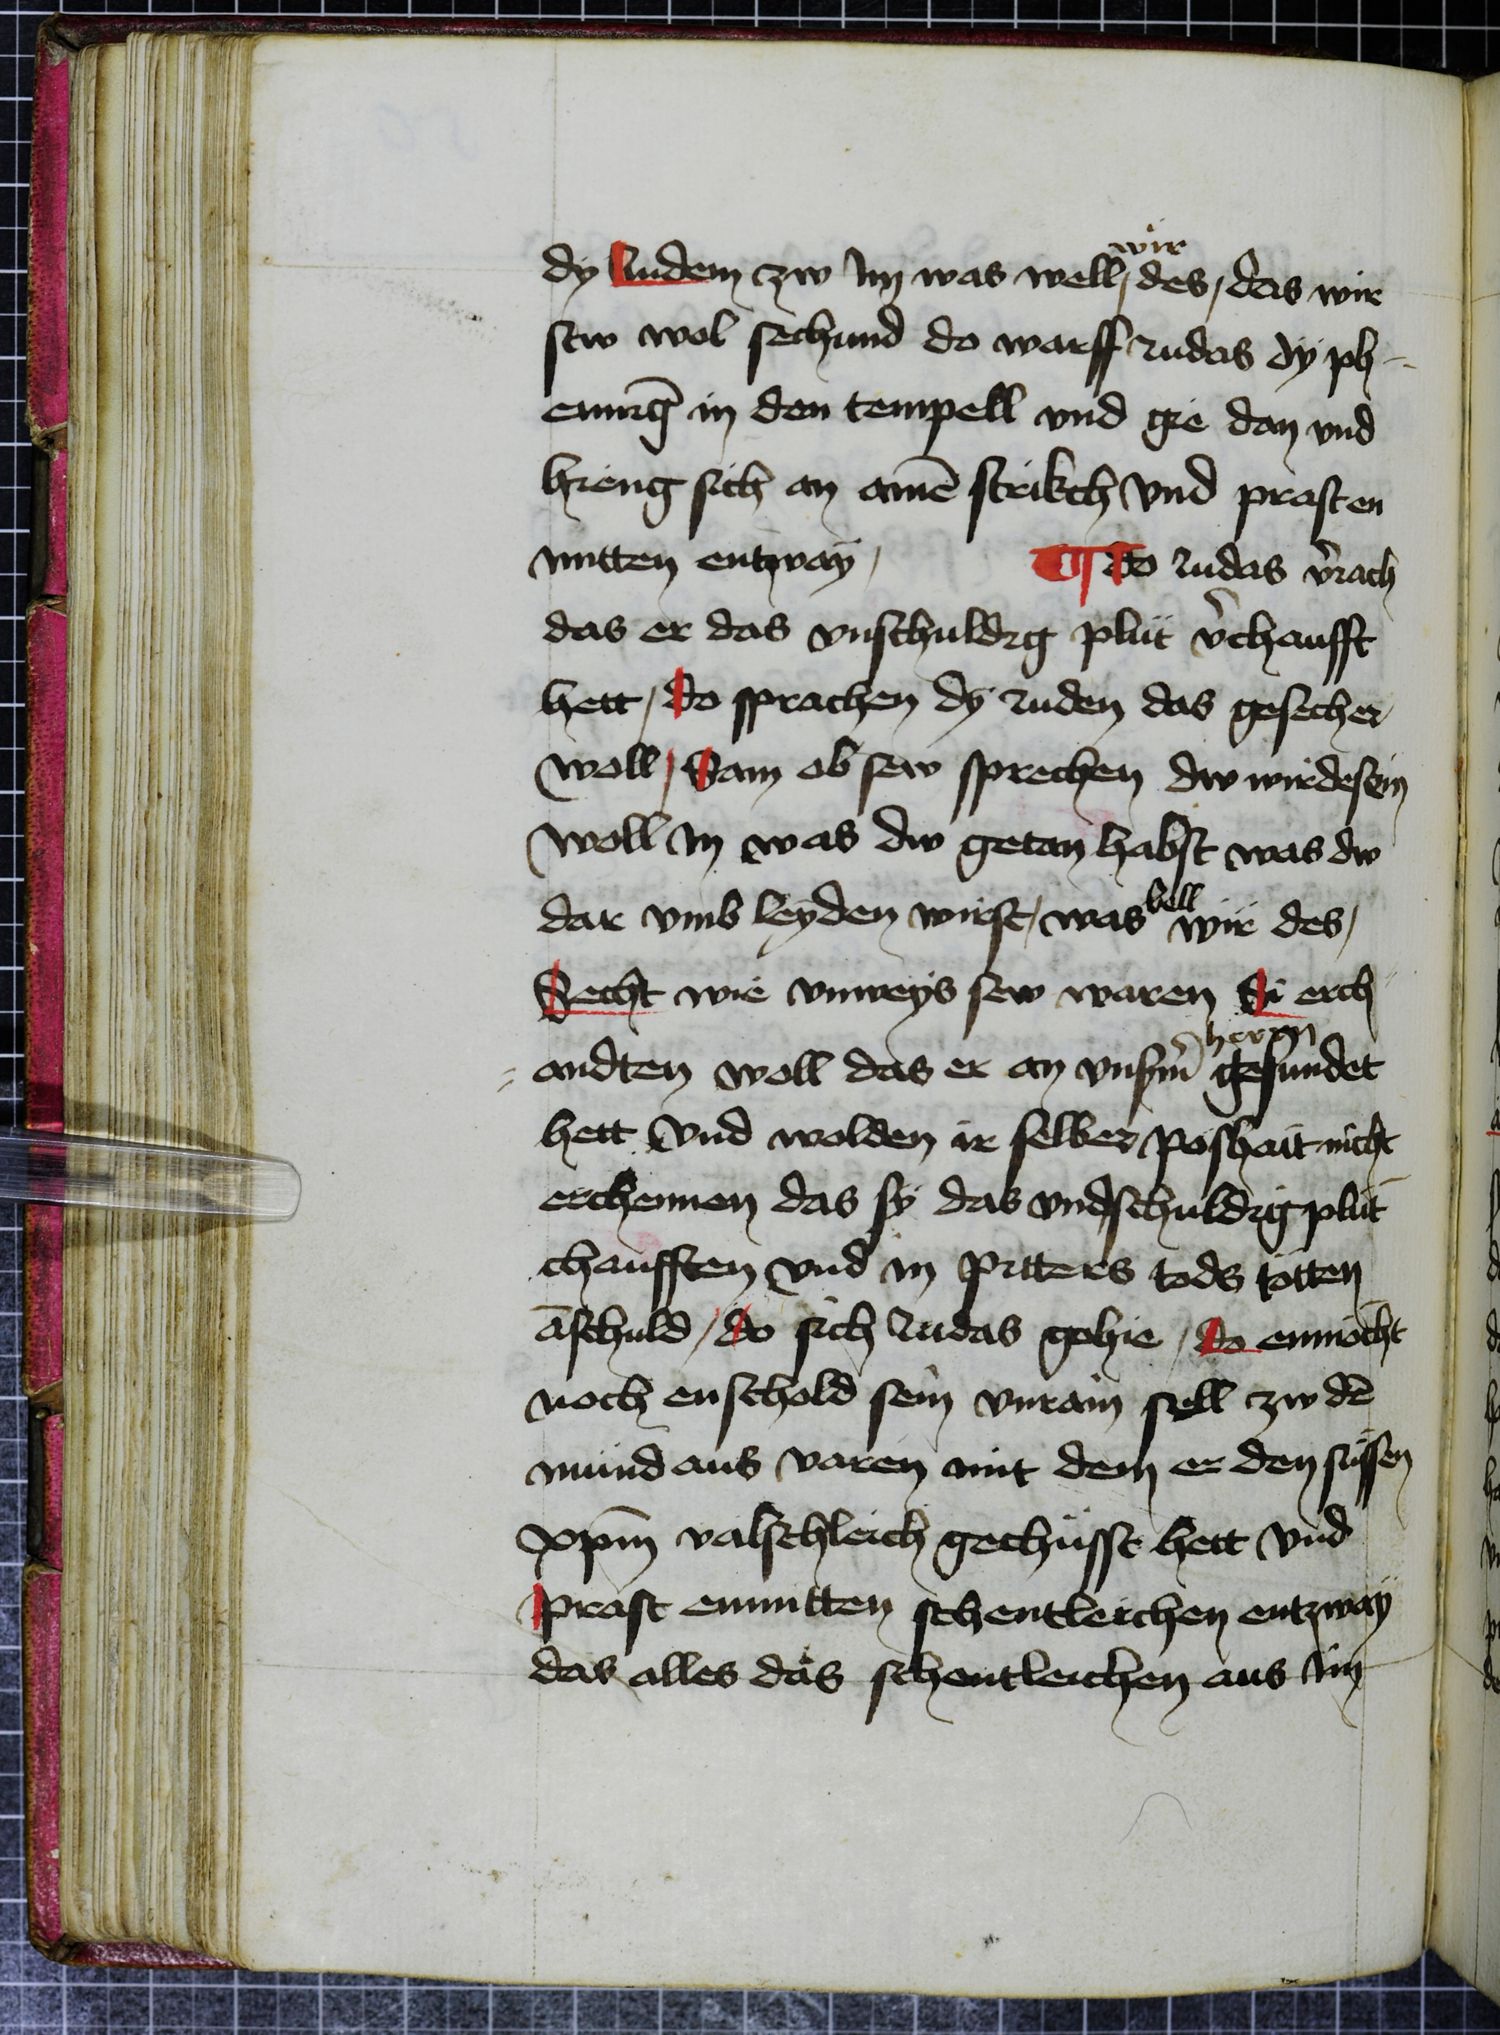 dy Iudem zw im was well wir des / das wir
sew wol sechund do warff Iudas dy ph-
enniḡ in den tempell vnd gie dan vnd
hieng sich an amē strikch Vnd prasten
mitten entzway /
¶ do Iudas v̓rach
das er das vnschuldig plut v̓chaufft
hett / do sprachen dy Iuden das gesecher
woll / Sam ob sew sprechen dw wirdesein
woll in was dw getan habst was dw
dar vmb leyden wirst / was bell wir des /
Secht wie vnweys sew waren Si erch-
andten woll das er an vnsm̄ herren gesundet
hett Vnd wolden ir selber poshait nicht
erchennen das sy das vndschuldig plut
chaufften vnd in pitters tods tötten
āschuld / do sich Iudas gehie / do enmocht
noch enschold sein vnrain sell zw dē
mund aus varen mit dem er den süssen
xpm̄ valschleich gechüsst hett Vnd
prast enmitten schentleichen entzway
das alles das schentleichen aus im